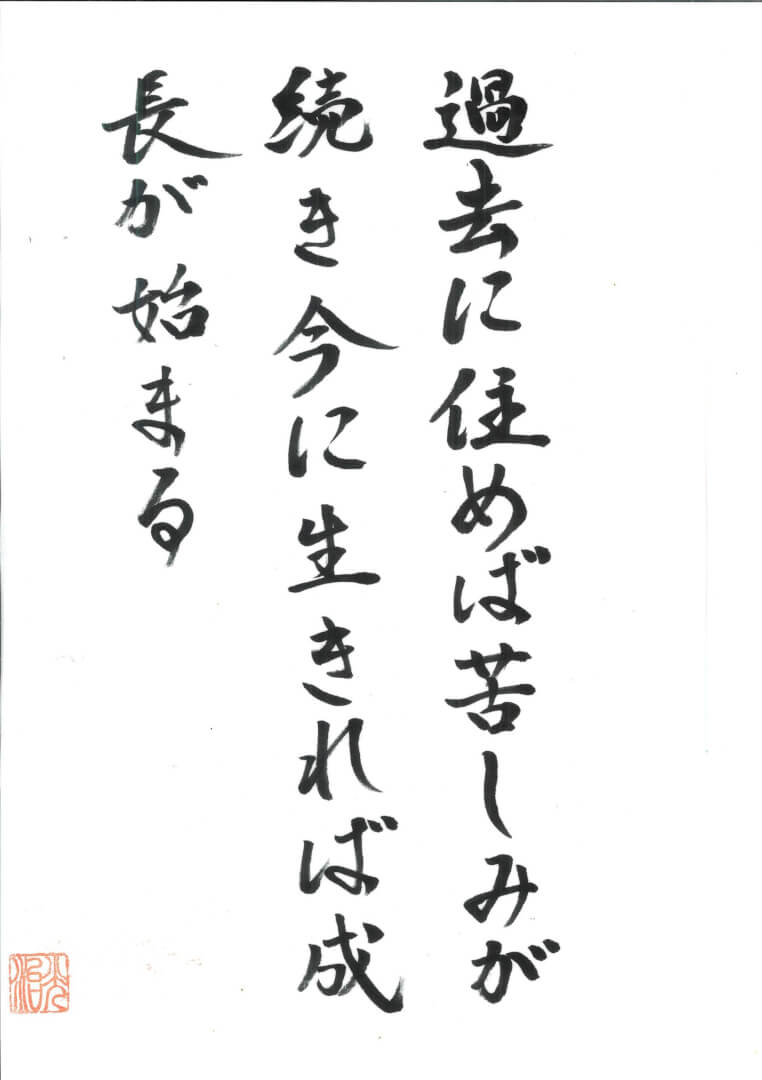 過去に住めば苦しみが
続き今に生きれば成
長が始まる